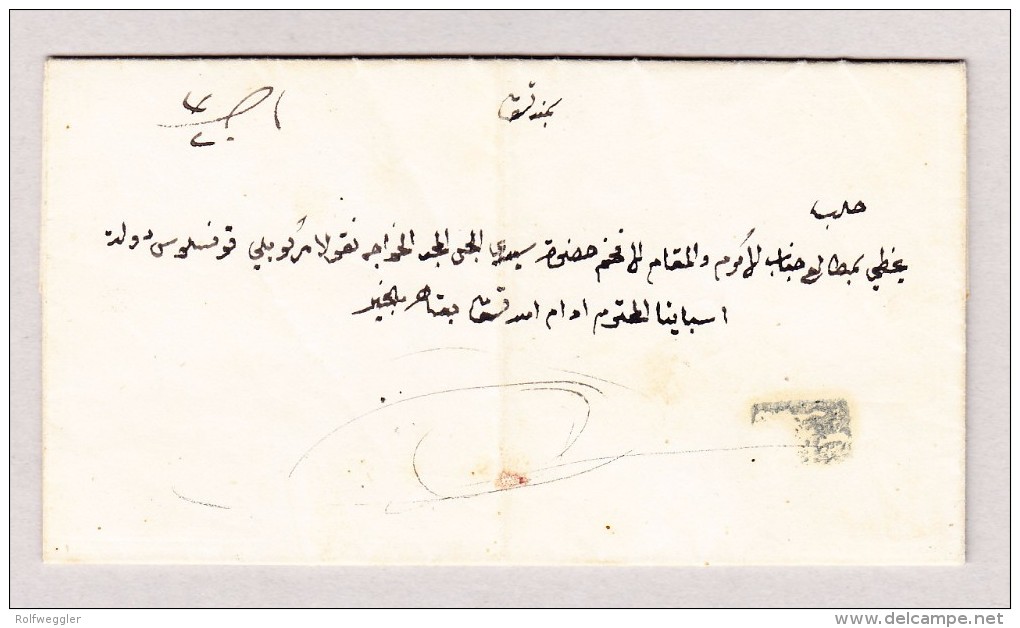 بمنه تعالى
حلب
يحظى بمطالع جناب الاكرم والمقام الافخم حضرة سيدنا المحب الخواجه نقولا مركوبلي قونسلوس دولة
اسبانيا المحترم ادام الله تعالى بقاه بالخير
Rolfweggler
delcampe.net